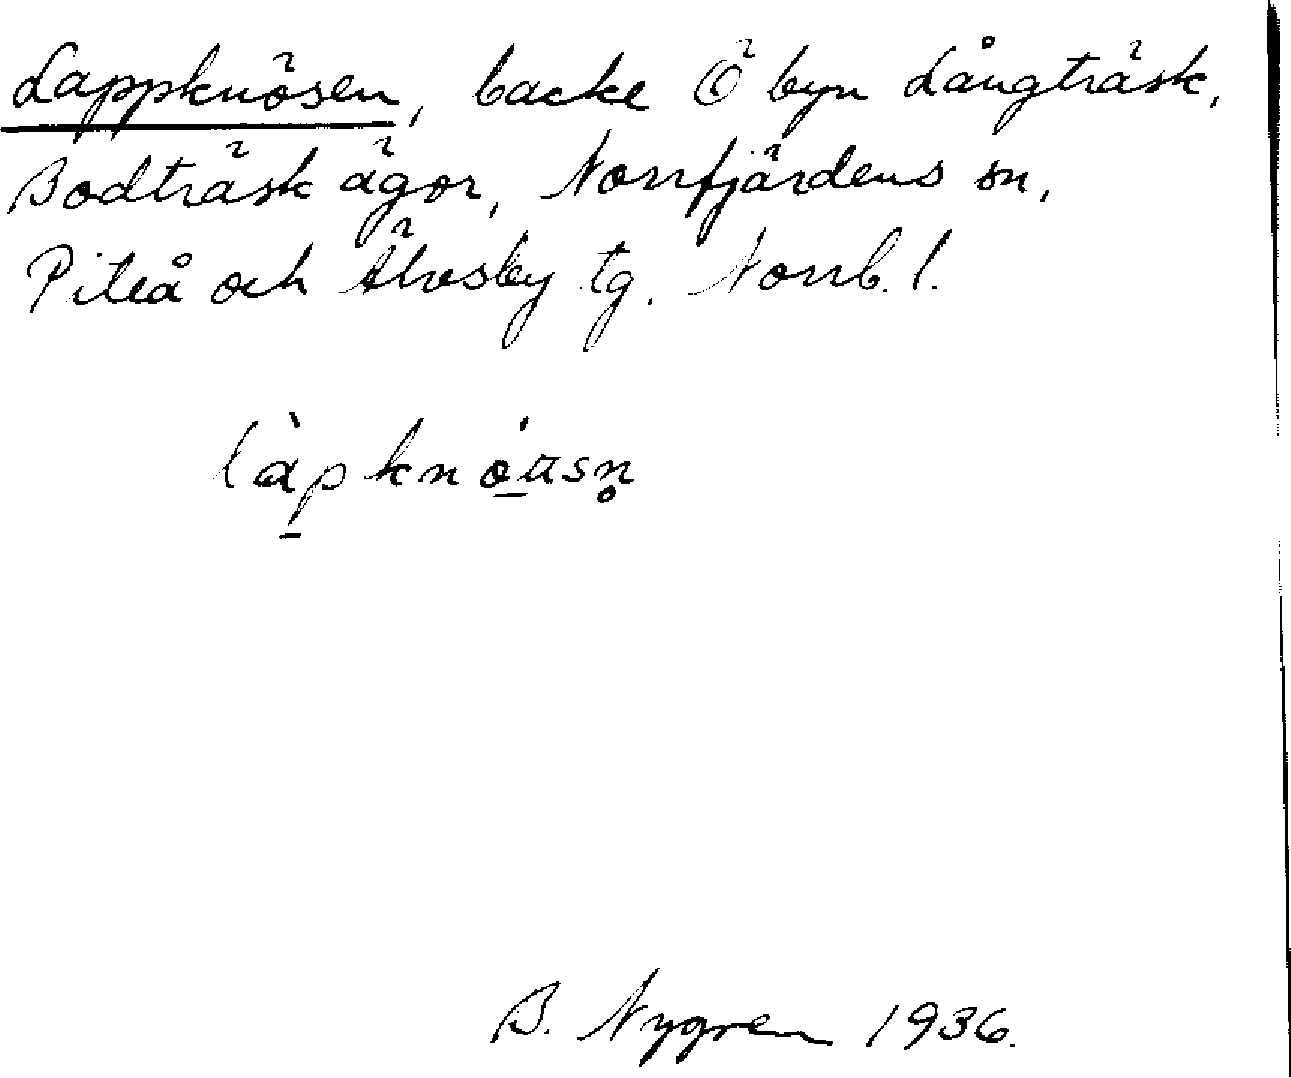 Lappknösen, backe Ö byn Långträsk,
Bodträsk ägor, Norrfjärdens sn,
Piteå och Älvsby tg. Norrb. l.
làpknö́usn̥
B. Nygren 1936.